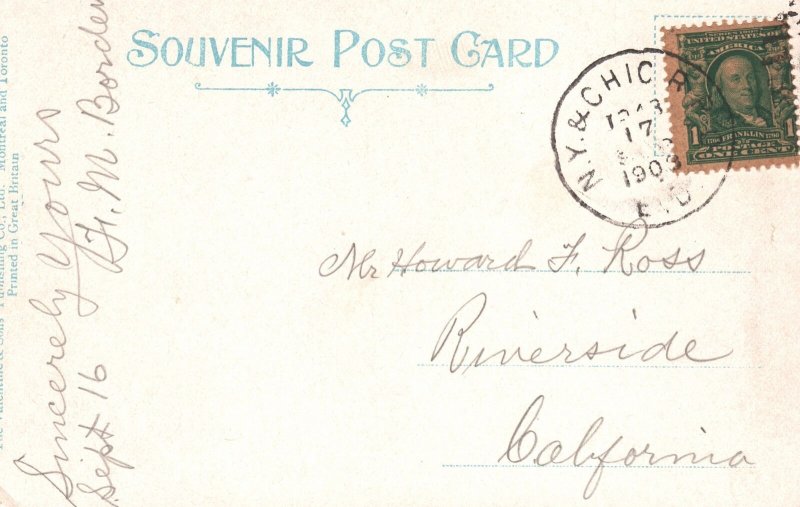 SOUVENIR POST CARD
SERIES 1902
UNITED STATES OF
AMERICA
1 FRANKLIN 1790 1
POSTAGE
ONE CENT
N.Y. & CHIC
17
1903
Mr Howard F. Ross
Riverside
California
Sincerely Yours
M. Borden
Sept 16
The Valentine & Sons Publishing Co., Ltd. Montreal and Toronto
Printed in Great Britain